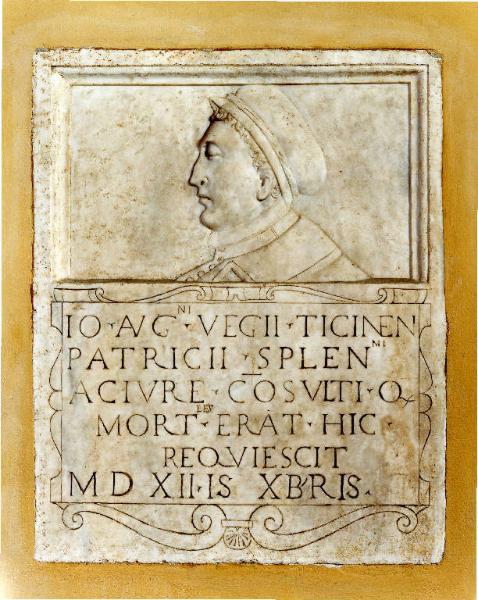 IO · AVGNI · VEGII · TICINEN
PATRICII · SPLENMI
AC IVRE · COSVLTI · Q
MORTLEV · ERAT · HIC ·
REQVIESCIT
M D XII · IS XBRIS ·